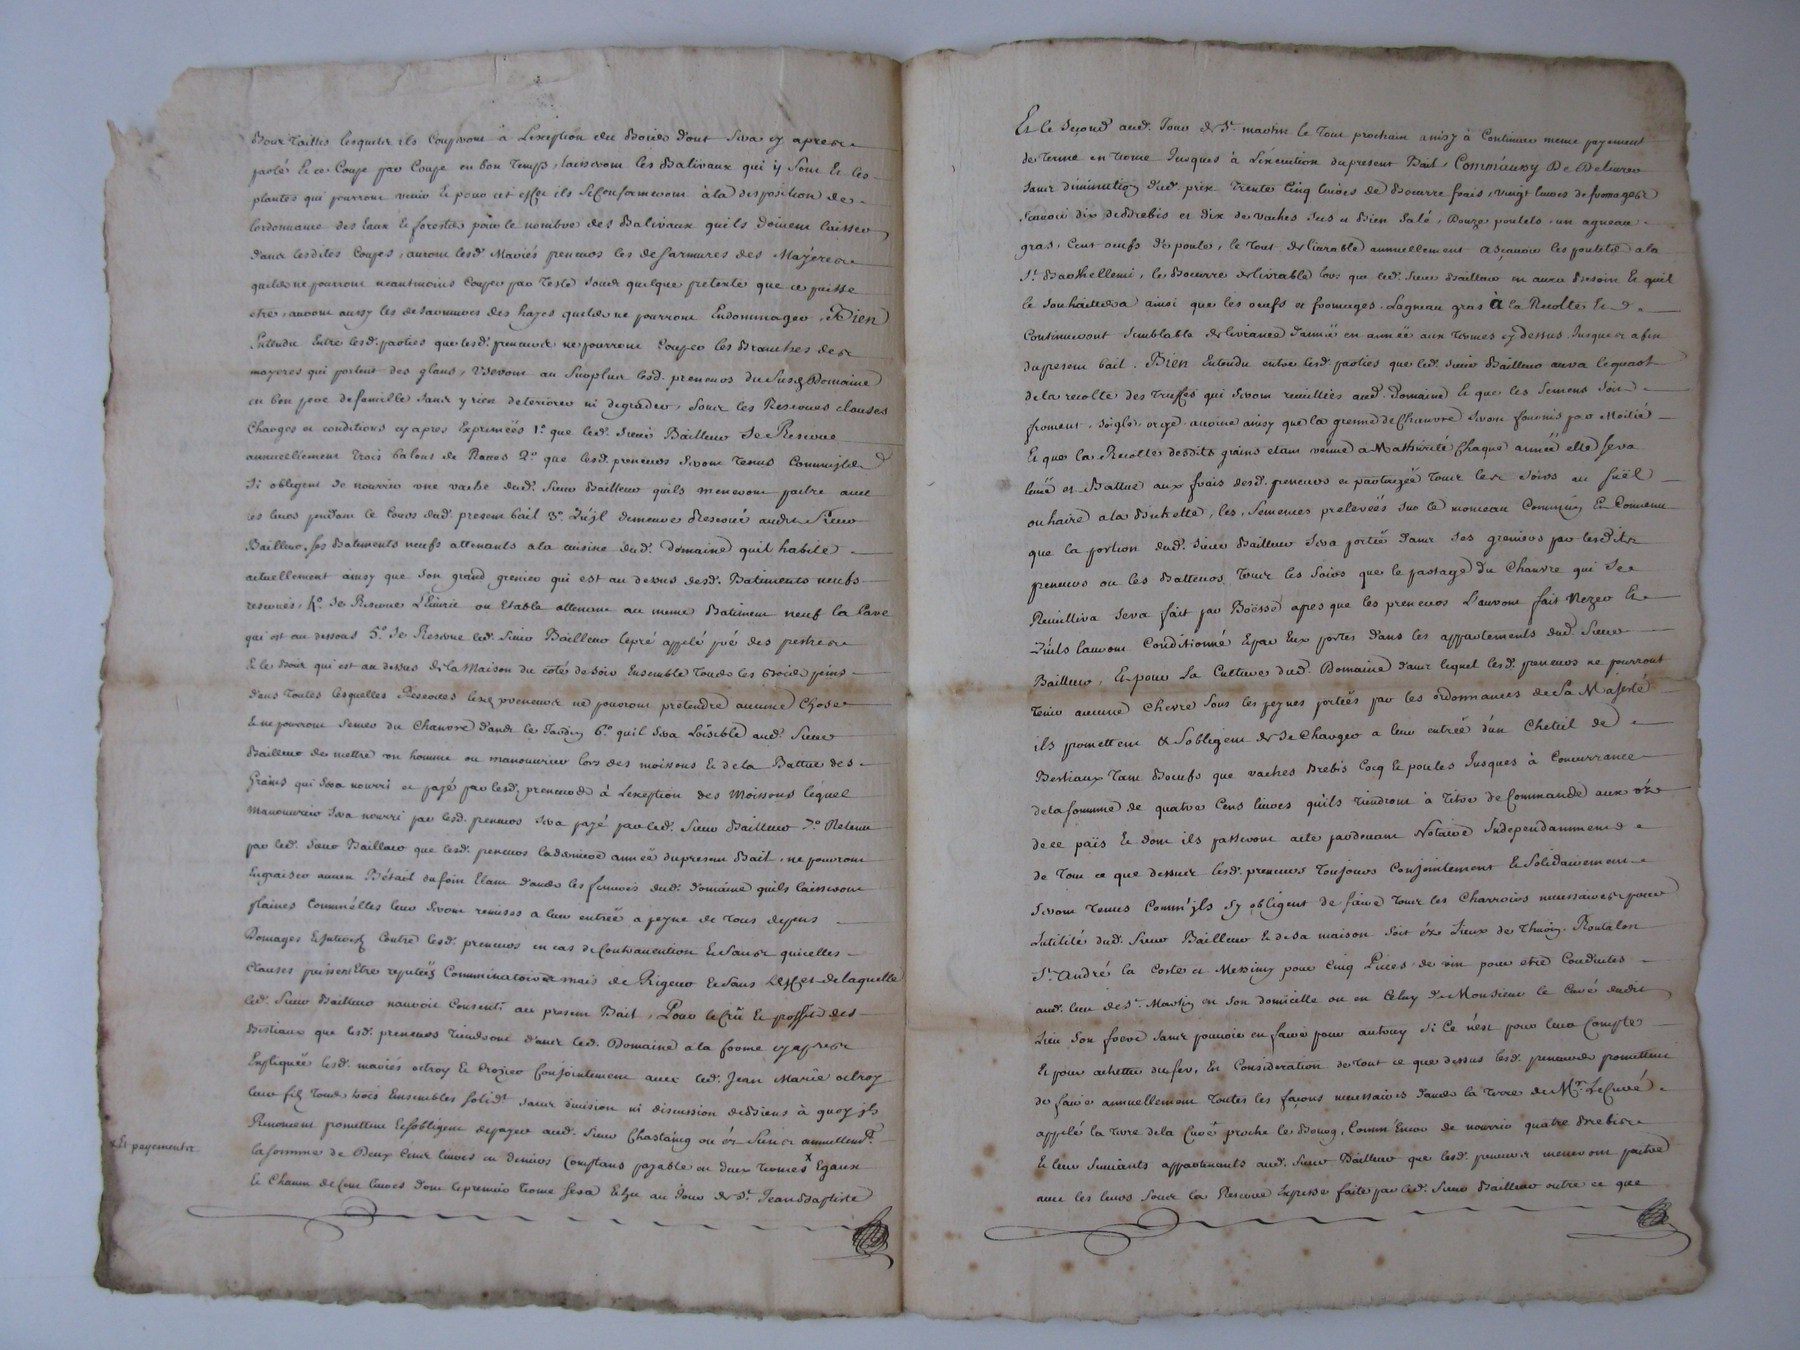 Bois Taillis lesquels ils couperont à L'exeption du Bois dont sera cy apres
parlé Et ce Coupe par Coupe en bon Temps, laisseront les Balivaux qui y sont Et les
plantes qui pourront venir Et pour cet effet ils se Conformeront à la disposition de
lordonnance des Eaux Et forests pour le nombre des Balivaux quils doivent laisser
dans lesdites Coupes, auront lesd. Mariés preneurs les desarmures des Mayeres
quils ne pourront neantmoins Couper par Teste sous quelque pretexte que ce puisse
etre, auront aussy les desarmures des hayes quils ne pourront Endommager, Bien
Entendu Entre lesd. parties que lesd. preneurs ne pourront Couper les Branches des
mayeres qui portent des glans, Useront au Surplus lesd. preneurs du susd. Domaine
en bon pere de famille sans y rien deteriorer ni degrader, sous les Reserves clauses
Charges et conditions cy apres Exprimées 1.° que led. Sieur Bailleur Se Reserve
annuellement trois balons de Raves 2.° que lesd. preneurs seront Tenus Comme ils
Si obligent de nourrir une vache dud. Sieur Bailleur quils meneront paitre avec
les leurs pendant le Cours dud. present bail 3.° Qu'jl demeure Reservé audit Sieur
Bailleur, ses Batiments neufs attenants a la cuisine dud. Domaine quil habite
actuellement ainsy que son grand grenier qui est au dessus desd. Batiments neufs
reservés, 4.° se Reserve L'Ecurie ou Etable attenant au meme Batiment neuf la Cave
qui est au dessous 5.° se Reserve led. Sieur Bailleur le pré appelé pré des
Et le Bois qui est au dessus de la Maison du coté de soir Ensemble Tous les Bois pins
dans toutes lesquelles Reserves lesd. preneurs ne pouront prétendre aucune Chose
Et ne pourront semer du Chanvre dans le Jardin 6.° quil sera Loisible aud. Sieur
Bailleur de mettre un homme ou manouvrier lors des moissons Et de la Battue des
Grains qui sera nourri et payé par lesd. preneurs à Lexeption des Moissons lequel
Manouvrier sera nourri par lesd. preneurs sera payé par led. Sieur Bailleur 7.° Retenu
par led. Sieur Bailleur que lesd. preneurs la derniere année du present Bail, ne pouront
Engraisser aucun Bétail du foin Etant dans les fenieres dud. domaine quils laisseront
plaines Comm'elles leur seront remises a leur entrée a peyne de Tous depens
Domages Et interest Contre lesd. preneurs en cas de Contravention Et sans quicelles
Clauses puissent Etre reputées Comminatoires mais de Rigeur Et sans L'Effet de laquelle
led. Sieur Bailleur nauroit Consenti au present Bail, Pour le Crû Et proffit des
Bestiaux que lesd. preneurs tiendront dans led. Domaine a la forme cy apres
Expliquée lesd. mariés octroy Et Conjointement avec led. Jean Marie octroy
leur fils Tous trois Ensembles solidt. sans division ni discussion de Biens à quoy jls
Renoncent promettent Et sobligent de payer aud. Sieur Chastaing ou és Siens annuellemt.
la somme de Deux Cens livres en deniers Comptans payable en deux termes x Egaux
x Et payements
le Chacun de Cent livres dont le premier terme sera Echu au Jour de St. Jean Baptiste
Et le second aud. Jour de St. martin le Tout prochain ainsy à Continuer meme payement
de terme en terme Jusques à L'éxecution du present Bail, Comm'aussy De Delivrer
sans diminution dud. prix Trente Cinq livres de Beurre frais, vingt livres de fromages
scavoir dix de Brebis et dix de vaches Secs et Bien Salé, Douze poulets, un agneau
gras, Cent oeufs de poules, le Tout delivrable annuellement a Scavoir les poulets a la
St. Barthellemie, le Beurre delivrable lors que led. Sieur Bailleur en aura Besoin Et quil
le souhaittera ainsi que les oeufs et fromages, Lagneau gras à la Recolte Et
Continueront Semblable delivrance dannée en année aux termes cy dessus Jusques a fin
du present bail. Bien Entendu entre lesd. parties que led. Sieur Bailleur aura le quart
de la recolte des Truffes qui seront recuillies aud. Domaine Et que les Semens soit
froment, Seigle, orge, avoine ainsy que la grenne de Chanvre seront fournis par Moitié
Et que la Recolte desdits grains etant venüe a Mathurité Chaque année elle sera
levée et Battue aux frais desd. preneurs et partagée Tous les soirs au suël
ou haire a la Bichette, les Semences prelevées sur le monceau Commun Et Convenu
que la portion dud. Sieur Bailleur sera portée dans ses greniers par lesdits
preneurs ou les Batteurs Tous les soirs que le partage du Chanvre qui se
Recuillira sera fait par apres que les preneurs L'auront fait Nezer Et
Qu'ils lauront Conditionné Et par Eux portes dans les appartements dud. Sieur
Bailleur, Et pour La Culture dud. Domaine dans lequel lesd. preneurs ne pourront
tenir aucune Chevre sous les peynes portées par les ordonnances de Sa Majesté
ils promettent Et sobligent de se Charger a leur entrée d'un Cheteil de
Bestiaux Tant Boeufs que vaches Brebis Cocq Et poules Jusques à Concurrance
de la somme de quatre Cens livres qu'ils tiendront à titre de Commande aux
de ce païs Et dont ils passeront acte pardevant Notaire Independamment
de Tout ce que dessus lesd. preneurs Toujours Conjointement Et Solidairement
seront Tenus Comm'jls sy obligent de faire Tous les Charrois necessaires pour
Lutilité dud. Sieur Bailleur Et de sa maison soit éz Lieux de Thurin, Rontalon
St. André la Coste et Messimy pour Cinq Pieces de vin pour etre Conduites
aud. lieu de St. Martin en son domicille ou en Celuy de Monsieur le Curé dudit
Lieu son frere sans pouvoir en faire pour autruy si ce n'est pour leur Compte
Et pour achetter du fer, En Consideration de Tout ce que dessus lesd. preneurs promettent
de faire annuellement toutes les façons necessaires dans la Terre de Mr. Le Curé
appelé la terre de la Curé proche le Bourg, Comm'Encor de nourrir quatre Brebis
Et leur Suivants appartenants aud. Sieur Bailleur que lesd. preneurs meneront paitre
avec les leurs sous la Reserve Expresse faite par led. Sieur Bailleur outre ce que